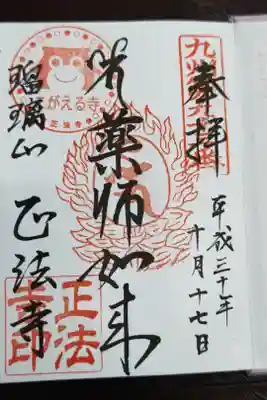 奉拝
平成三十年
十月十七日
薬師如来
瑠璃山
正法寺
かえる寺
正法寺
正法
寺印